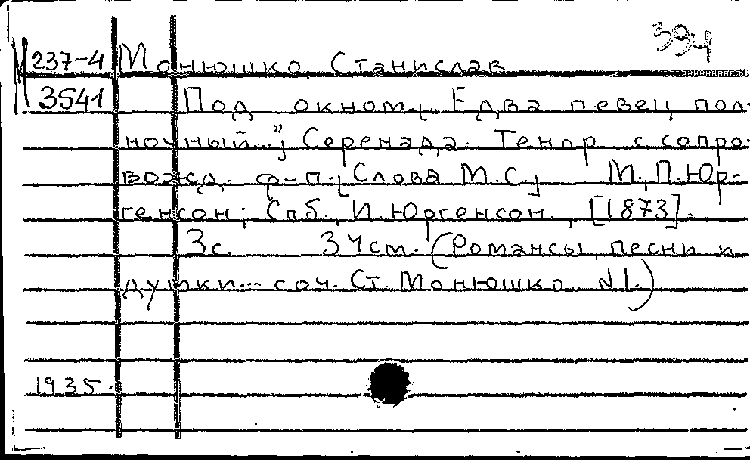 394
М 237-4 Монюшко Станислав
3541 Под окном. „Едва певец пол-
ночный..."; Серенада. Тенор с сопро-
вожд. ф-п. [Слова М.С.] М., П. Юр-
генсон; Спб., И. Юргенсон, [1873].
3с. 34см. (Романсы, песни и
думки... соч. Ст. Монюшко. №1.)
1935.